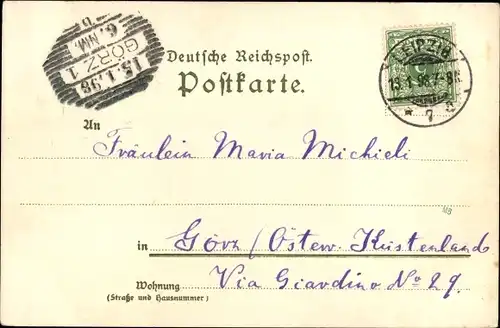 15.1.98
GÖRZ 1
6. NM.
Deutsche Reichspost.
Postkarte.
LEIPZIG
* 7 a
An
Fräulein Maria Michieli
MB
in Görz / Österr. Küstenland
Wohnung Via Giardino No 29.
(Straße und Hausnummer)